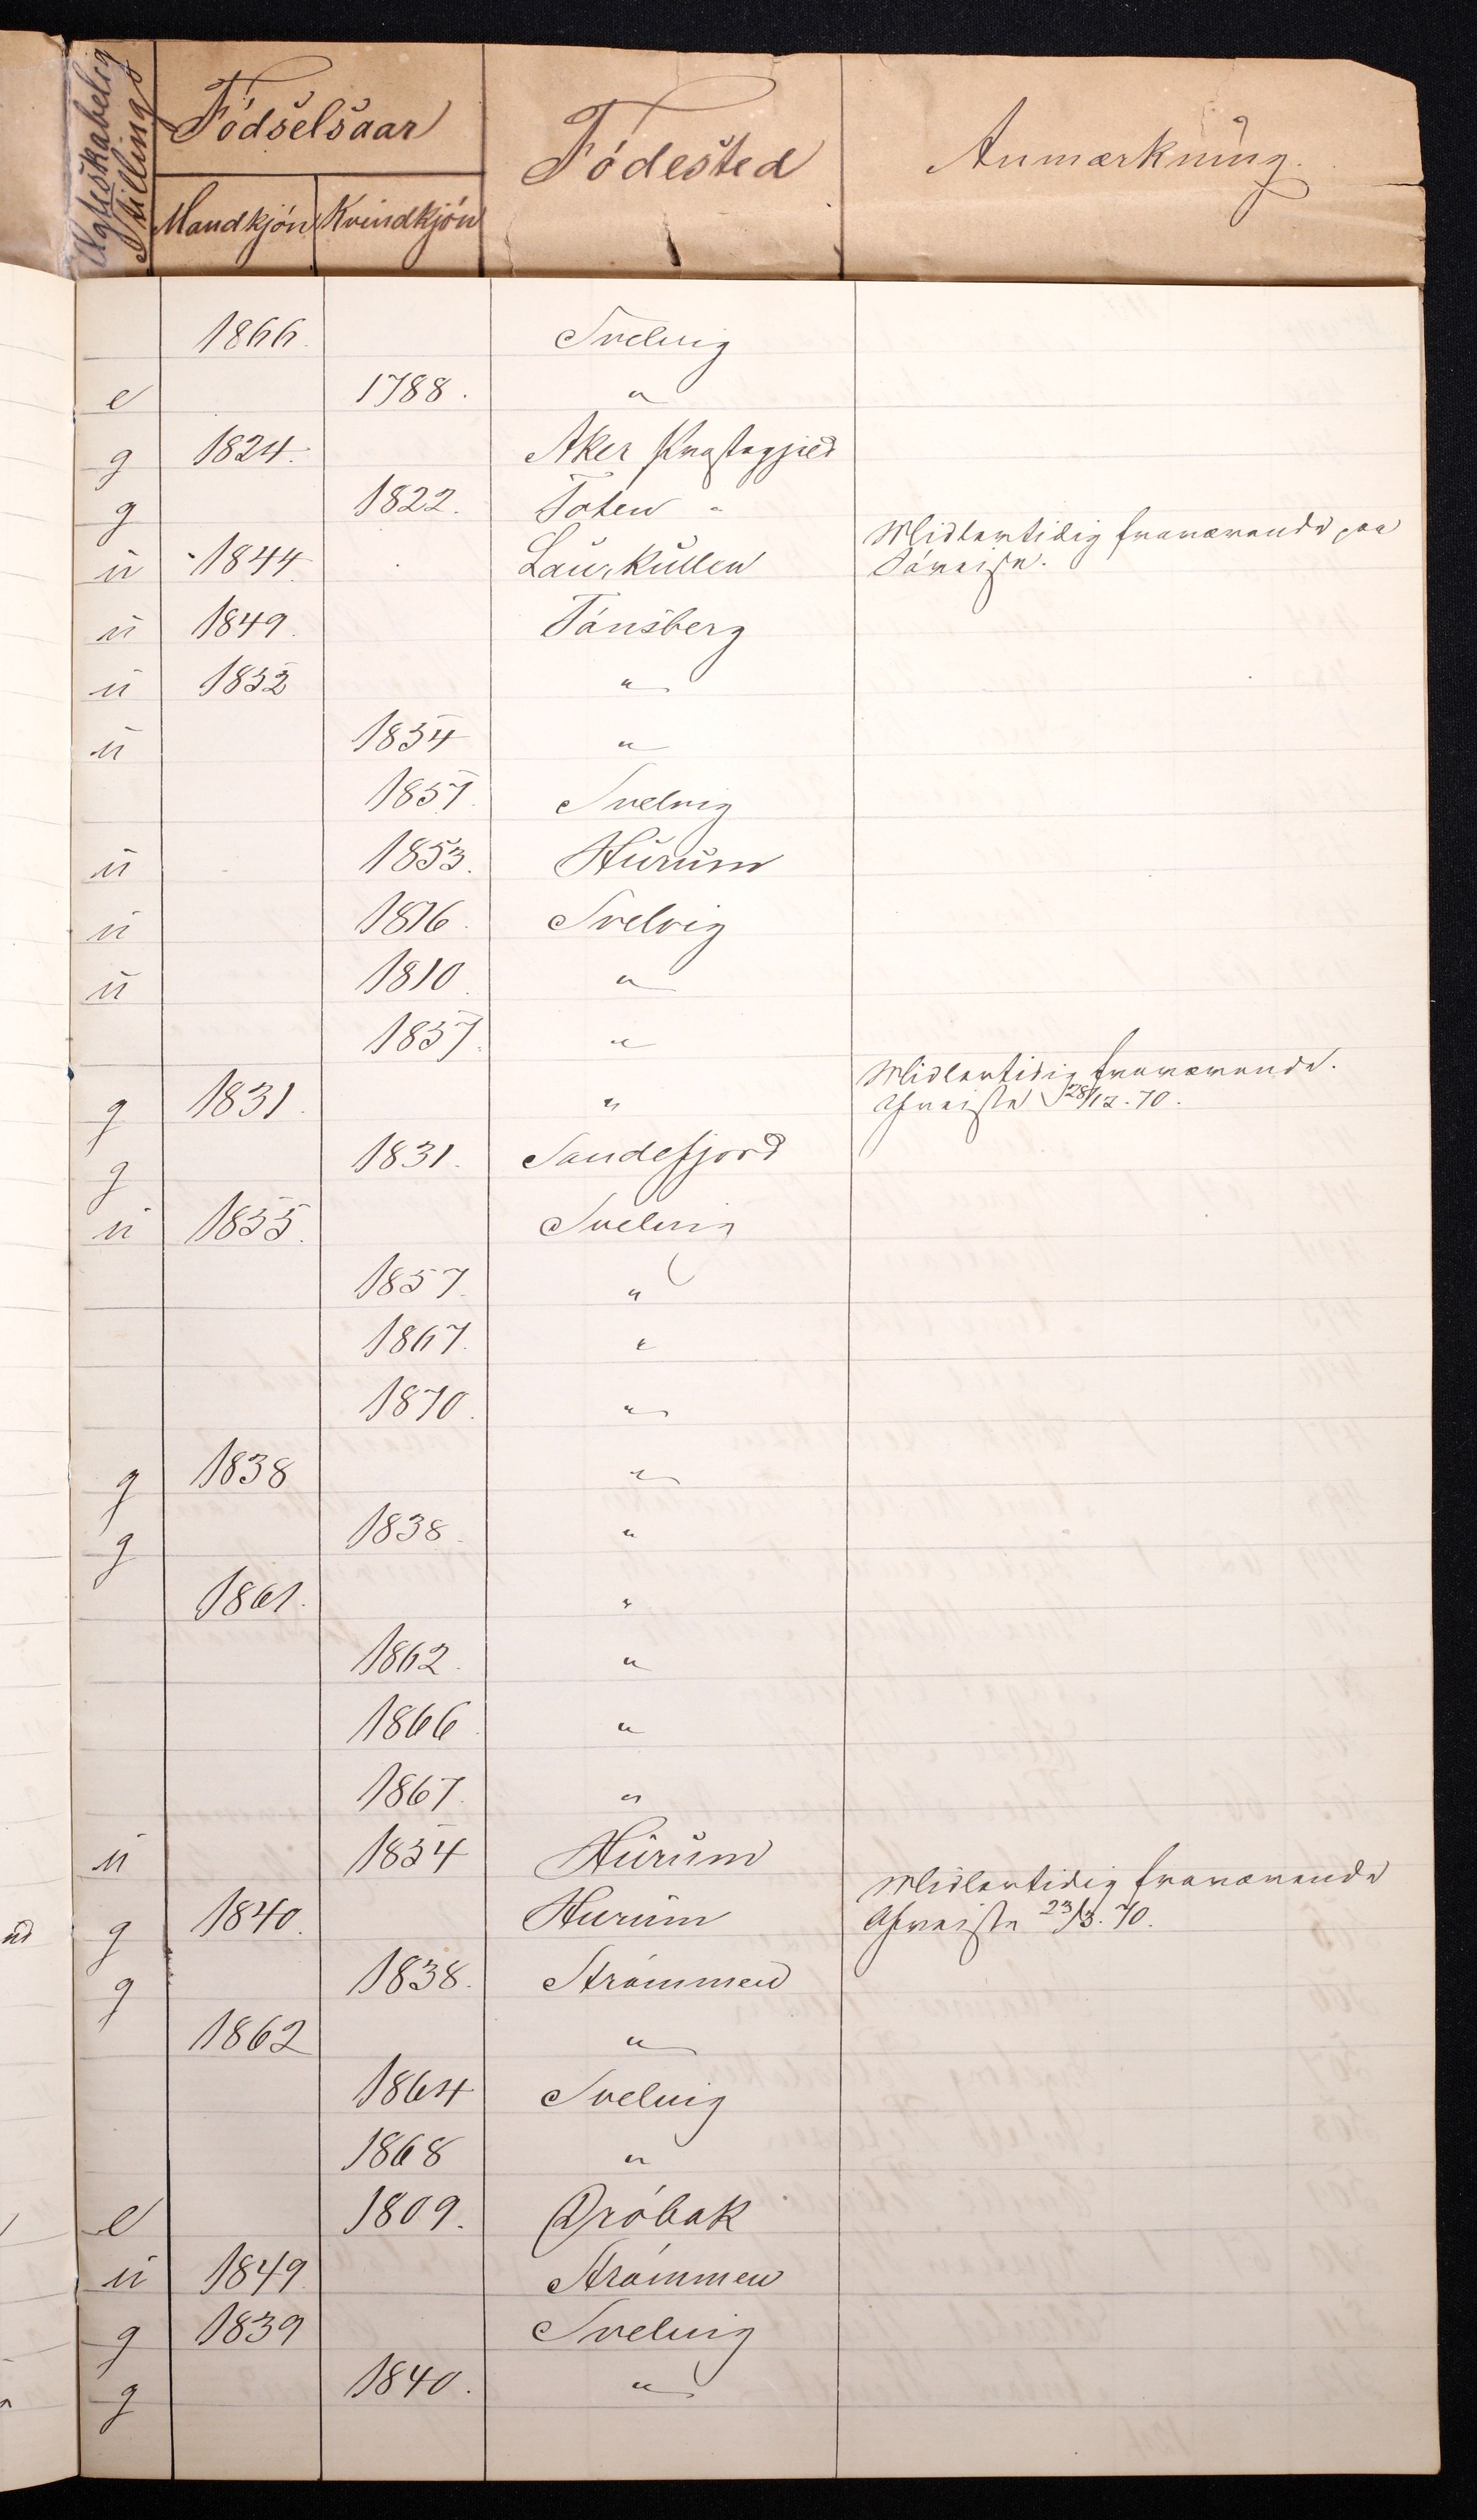 Ægteskabelig Stilling
Fódselsaar
Fódested
Anmærkning.
Mandkjón Kvindkjón
1866. Svelvig
e 1788. "
g 1824. Aker Præstegjeld
g 1822. Toten "
u 1844. Laurkullen Midlertidig fraværende paa
Sóreise.
u 1849. Tónsberg
u 1852 "
u 1854 "
1857. Svelvig
u 1853. Hurum
u 1816. Svelvig
u 1810. "
1857. "
Midlertidig fraværende.
g 1831. " Afreiste 28/12.70.
g 1831. Sandefjord
u 1855. Svelvig
1857. "
1867. "
1870. "
g 1838 "
g 1838. "
1861. "
1862. "
1866. "
1867. "
u 1854 Hurum
Midlertidig fraværende
g 1840. Hurum Afreiste 23/3.70.
g 1838. Strómmen
1862 "
1864 Svelvig
1868 "
e 1809. Dróbak
u 1849. Strómmen
g 1839 Svelvig
g 1840. "